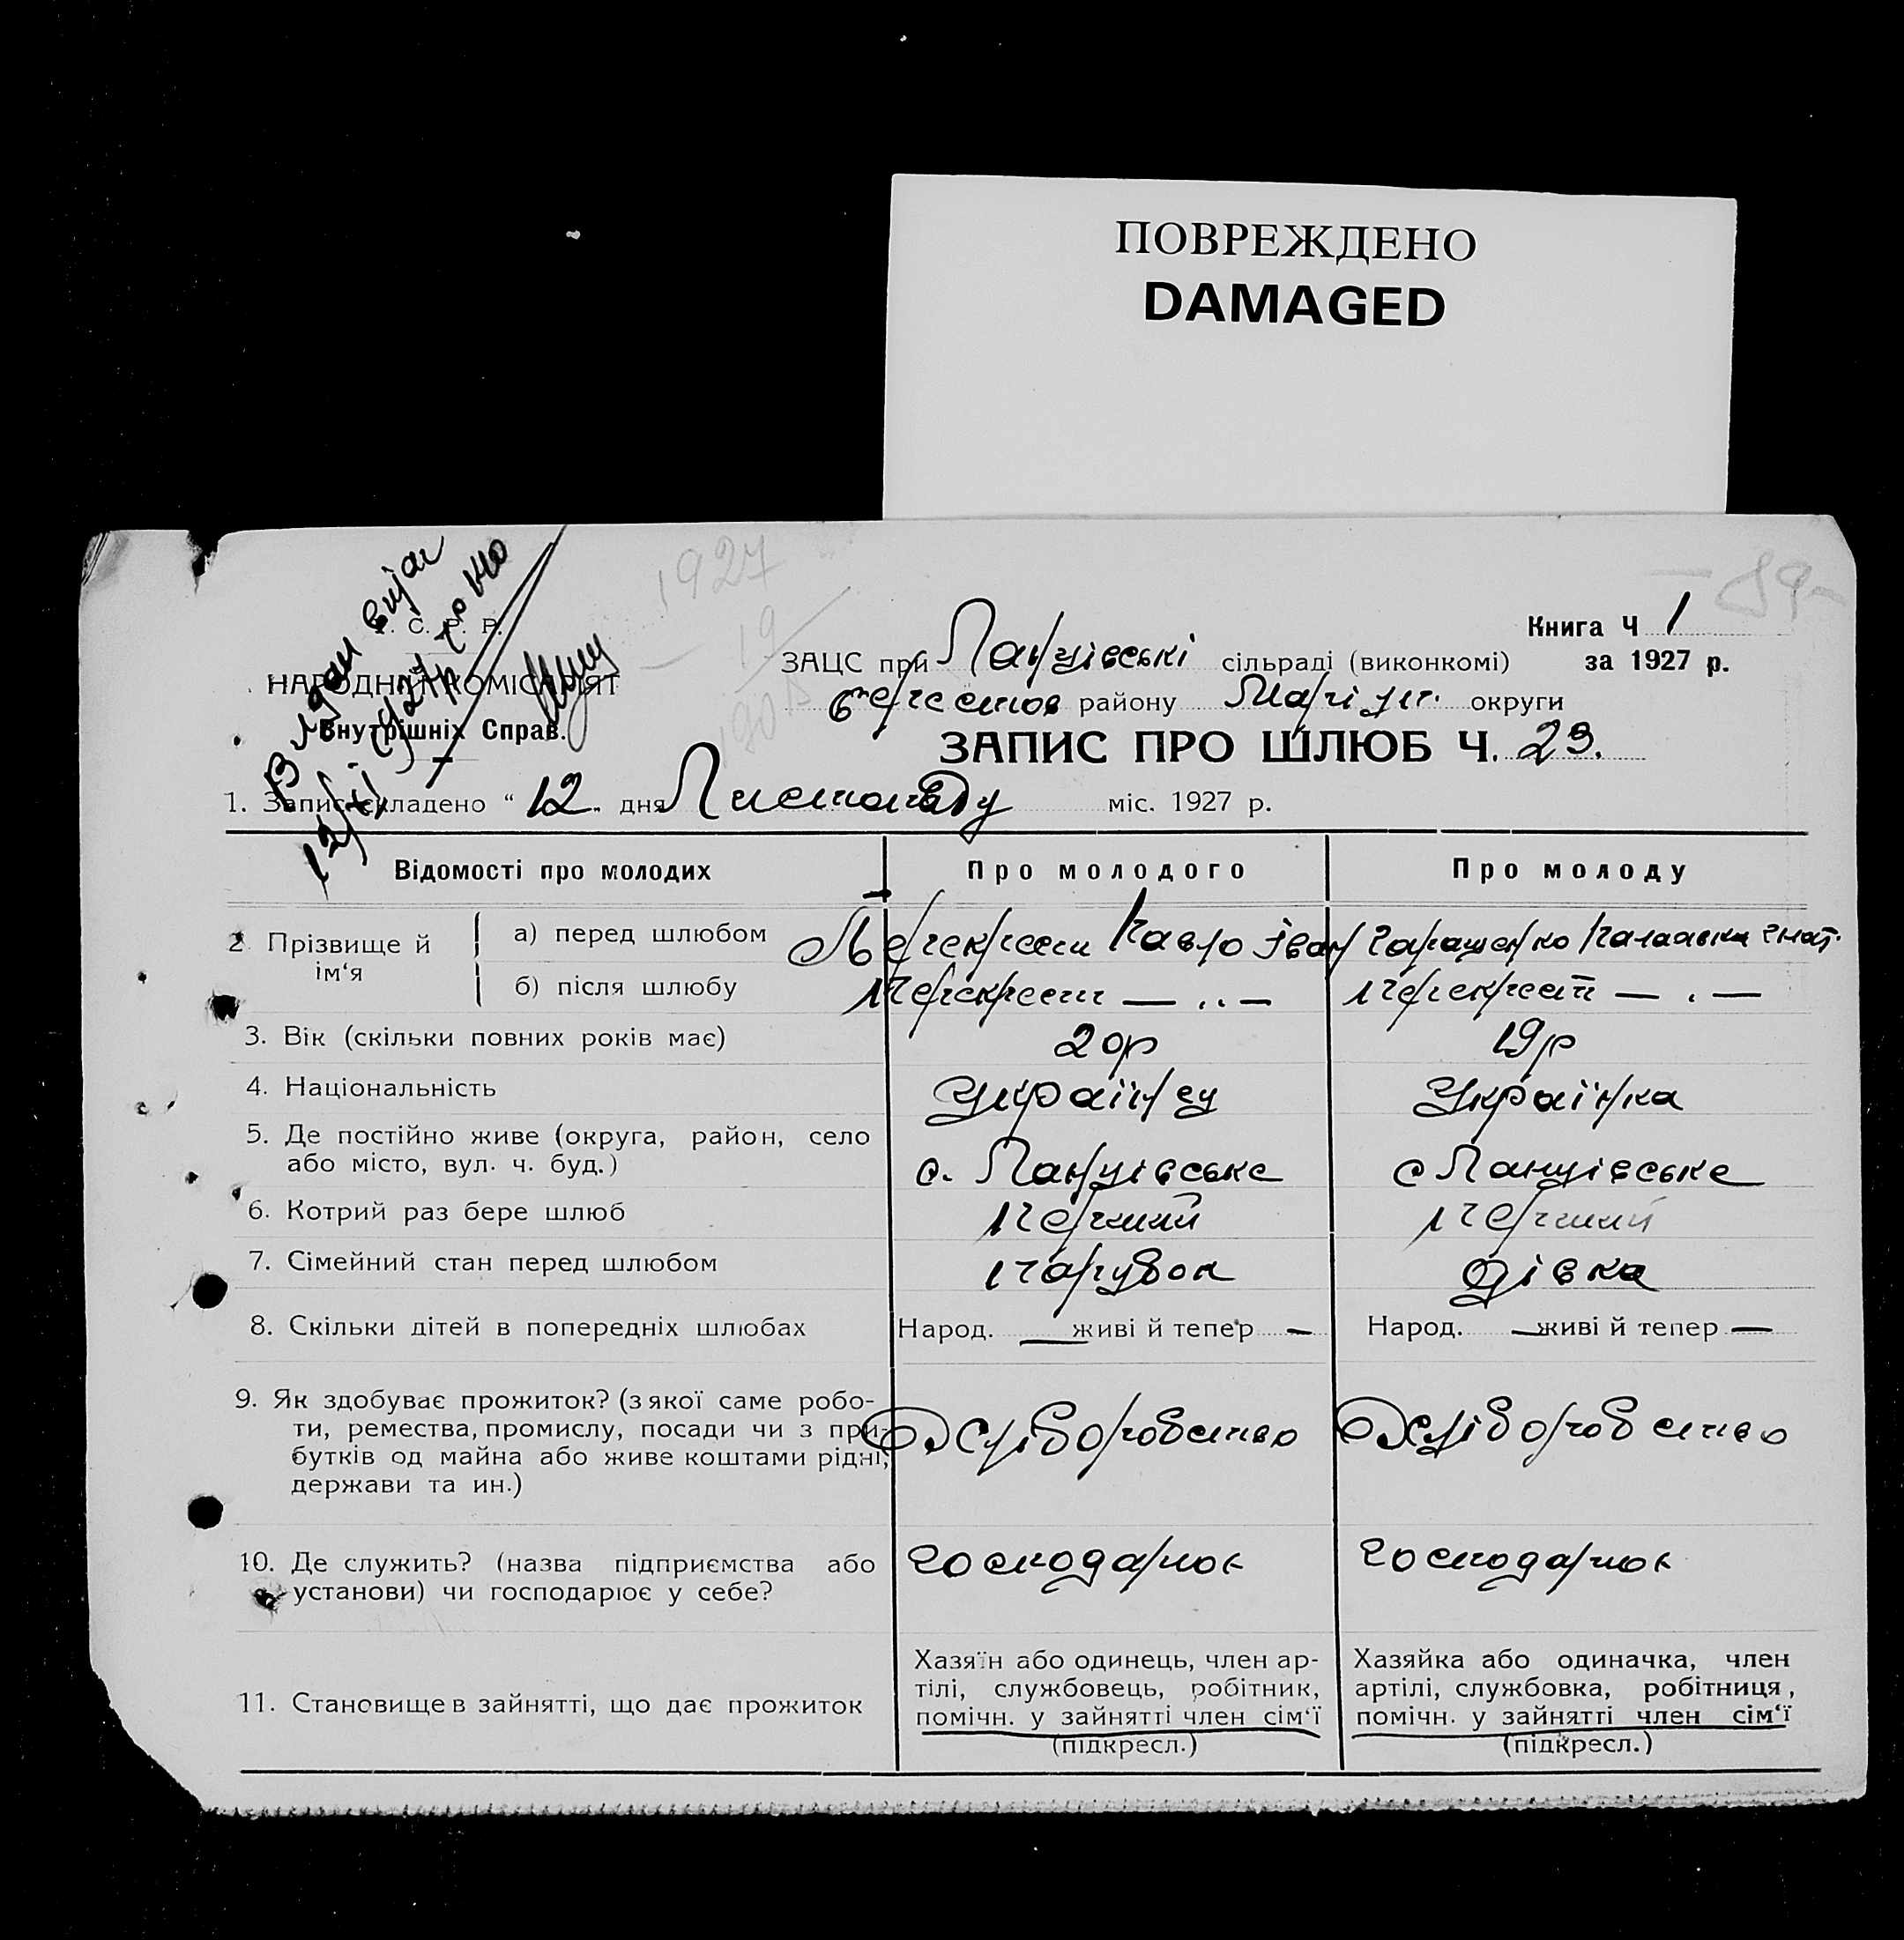 ПОВРЕЖДЕНО
DAMAGED
1927
- 89 -
Книга Ч 1
У. С. Р. Р.
ЗАЦС при Ланцівські сільраді (виконкомі) за 1927 р.
НАРОДНИЙ КОМІСАРІЯТ
району Маріуп. округи
Внутрішніх Справ.
ЗАПИС ПРО ШЛЮБ Ч. 23.
12/XI 1927р
1. Запис складено “ 12 „ дня Листопаду міс. 1927 р.
Відомості про молодих Про молодого Про молоду
2. Прізвище й ім‘я
а) перед шлюбом Перекрест Павло Іван
б) після шлюбу Перекрест — „ — Перекрест — „ —
3. Вік (скільки повних років має) 20р 19р
4. Національність Українец Українка
5. Де постійно живе (округа, район, село
або місто, вул. ч. буд.) с. Ланцівське с Ланцівське
6. Котрий раз бере шлюб перший перший
7. Сімейний стан перед шлюбом парубок дівка
8. Скільки дітей в попередніх шлюбах Народ. — живі й тепер — Народ. — живі й тепер —
9. Як здобуває прожиток? (з якої саме робо-
ти, ремества, промислу, посади чи з при-
бутків од майна або живе коштами рідні,
держави та ин.)
Хліборобство Хліборобство
10. Де служить? (назва підприємства або
установи) чи господарює у себе?
господарює господарює
11. Становище в зайнятті, що дає прожиток
Хазяїн або одинець, член ар-
тілі, службовець, робітник,
помічн. у зайнятті член сім‘ї
(підкресл.)
Хазяйка або одиначка, член
артілі, службовка, робітниця,
помічн. у зайнятті член сім‘ї
(підкресл.)